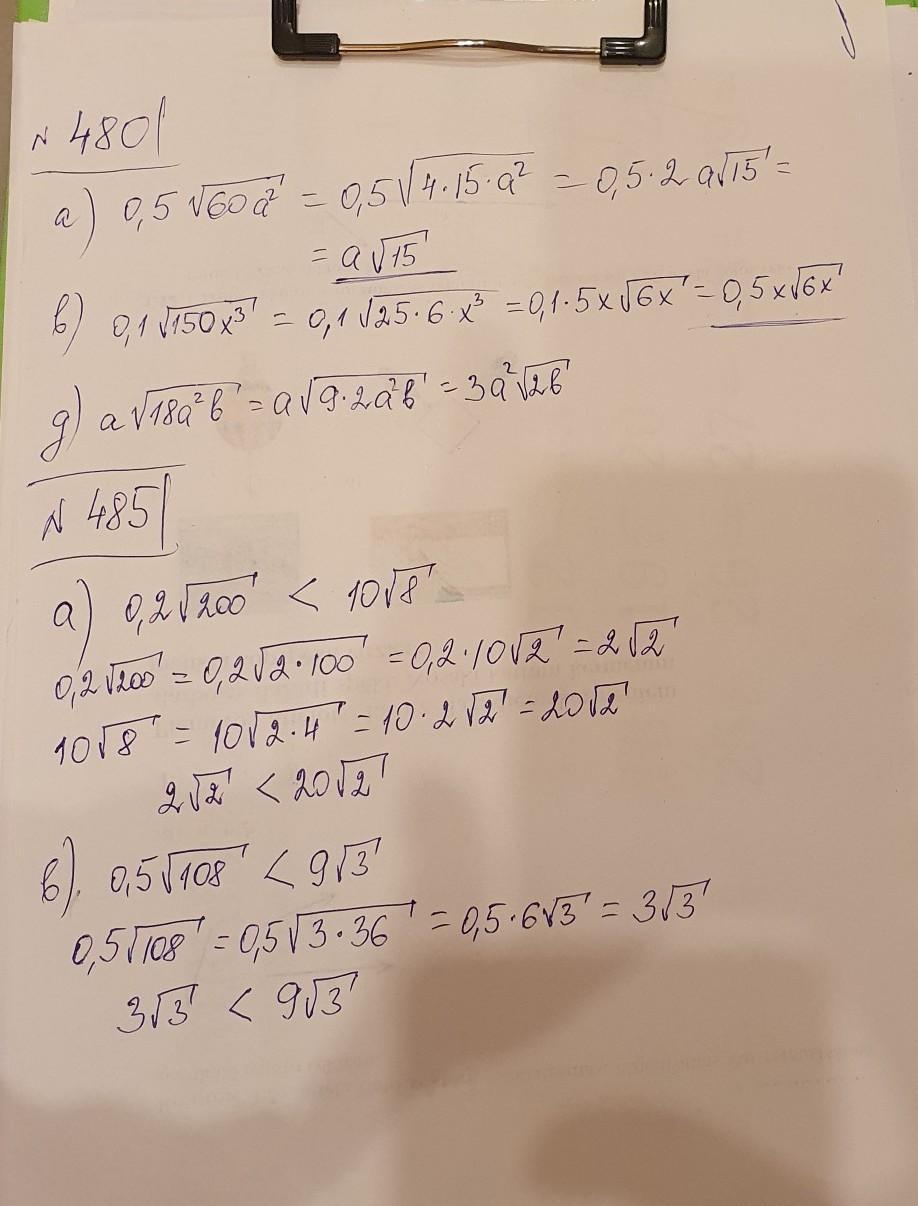 № 480
а) 0,5 √60a² = 0,5√4·15·a² = 0,5·2 a√15 =
= a √15
в) 0,1√150x³ = 0,1√25·6·x³ = 0,1·5x√6x = 0,5x√6x
д) a√18a²b = a√9·2a²b = 3a²√2b
№ 485
а) 0,2√200 < 10√8
0,2√200 = 0,2√2·100 = 0,2·10√2 = 2√2
10√8 = 10√2·4 = 10·2√2 = 20√2
2√2 < 20√2
в). 0,5√108 < 9√3
0,5√108 = 0,5√3·36 = 0,5·6√3 = 3√3
3√3 < 9√3